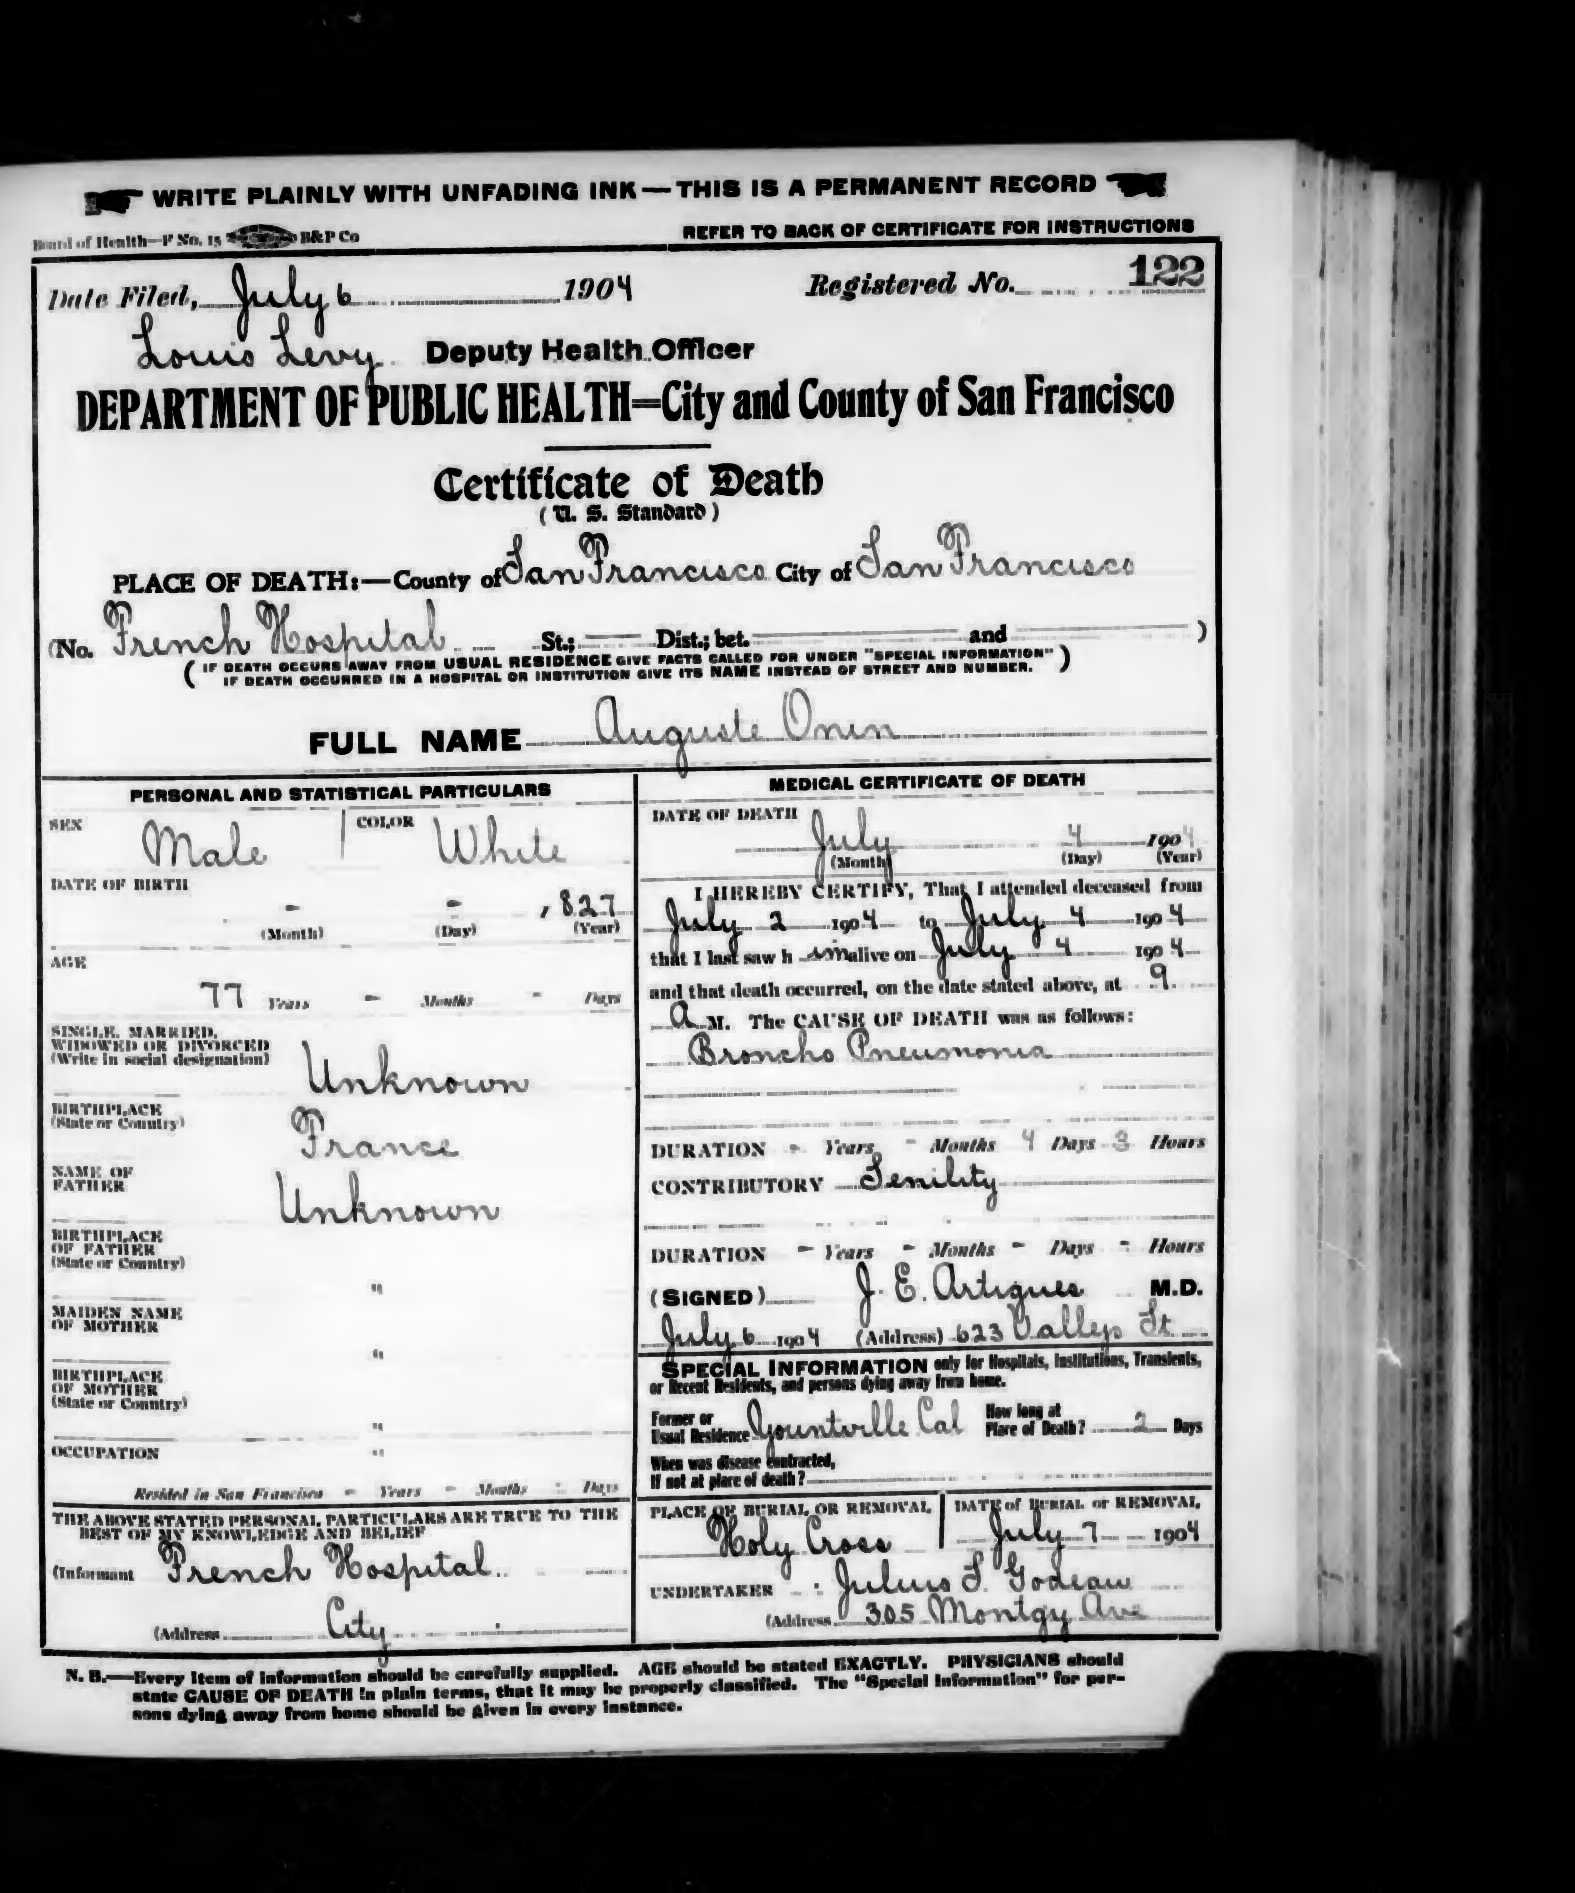 WRITE PLAINLY WITH UNFADING INK — THIS IS A PERMANENT RECORD
Board of Health—F No. 15 B&P Co REFER TO BACK OF CERTIFICATE FOR INSTRUCTIONS
Date Filed, July 6 1904 Registered No. 122
Louis Levy Deputy Health Officer
DEPARTMENT OF PUBLIC HEALTH=City and County of San Francisco
Certificate of Death
(U. S. Standard)
PLACE OF DEATH:—County of San Francisco City of San Francisco
(No. French Hospital St.; Dist.; bet. and )
(IF DEATH OCCURS AWAY FROM USUAL RESIDENCE GIVE FACTS CALLED FOR UNDER "SPECIAL INFORMATION"
IF DEATH OCCURRED IN A HOSPITAL OR INSTITUTION GIVE ITS NAME INSTEAD OF STREET AND NUMBER.)
FULL NAME Auguste Onin
PERSONAL AND STATISTICAL PARTICULARS
SEX Male COLOR White
DATE OF BIRTH
- - , 827
(Month) (Day) (Year)
AGE
77 Years - Months - Days
SINGLE, MARRIED,
WIDOWED OR DIVORCED
(Write in social designation)
Unknown
BIRTHPLACE
(State or Country)
France
NAME OF
FATHER
Unknown
BIRTHPLACE
OF FATHER
(State or Country)
"
MAIDEN NAME
OF MOTHER
"
BIRTHPLACE
OF MOTHER
(State or Country)
"
OCCUPATION "
Resided in San Francisco - Years - Months - Days
THE ABOVE STATED PERSONAL PARTICULARS ARE TRUE TO THE
BEST OF MY KNOWLEDGE AND BELIEF
(Informant French Hospital
(Address City
MEDICAL CERTIFICATE OF DEATH
DATE OF DEATH
July 4 1904
(Month) (Day) (Year)
I HEREBY CERTIFY, That I attended deceased from
July 2 1904 to July 4 1904
that I last saw h im alive on July 4 1904
and that death occurred, on the date stated above, at 9
A M. The CAUSE OF DEATH was as follows:
Broncho Pneumonia
DURATION - Years - Months 4 Days 3 Hours
CONTRIBUTORY Senility
DURATION - Years - Months - Days - Hours
(SIGNED) J. E. Artigues M.D.
July 6 1904 (Address) 623 Vallejo St
SPECIAL INFORMATION only for Hospitals, Institutions, Transients,
or Recent Residents, and persons dying away from home.
Former or
Usual Residence Yountville Cal
How long at
Place of Death? 2 Days
When was disease contracted,
If not at place of death?
PLACE OF BURIAL OR REMOVAL
Holy Cross
DATE of BURIAL or REMOVAL
July 7 1904
UNDERTAKER Julius S. Godeau
(Address 305 Montgy Ave
N. B.—Every item of information should be carefully supplied. AGE should be stated EXACTLY. PHYSICIANS should
state CAUSE OF DEATH in plain terms, that it may be properly classified. The "Special Information" for per-
sons dying away from home should be given in every instance.